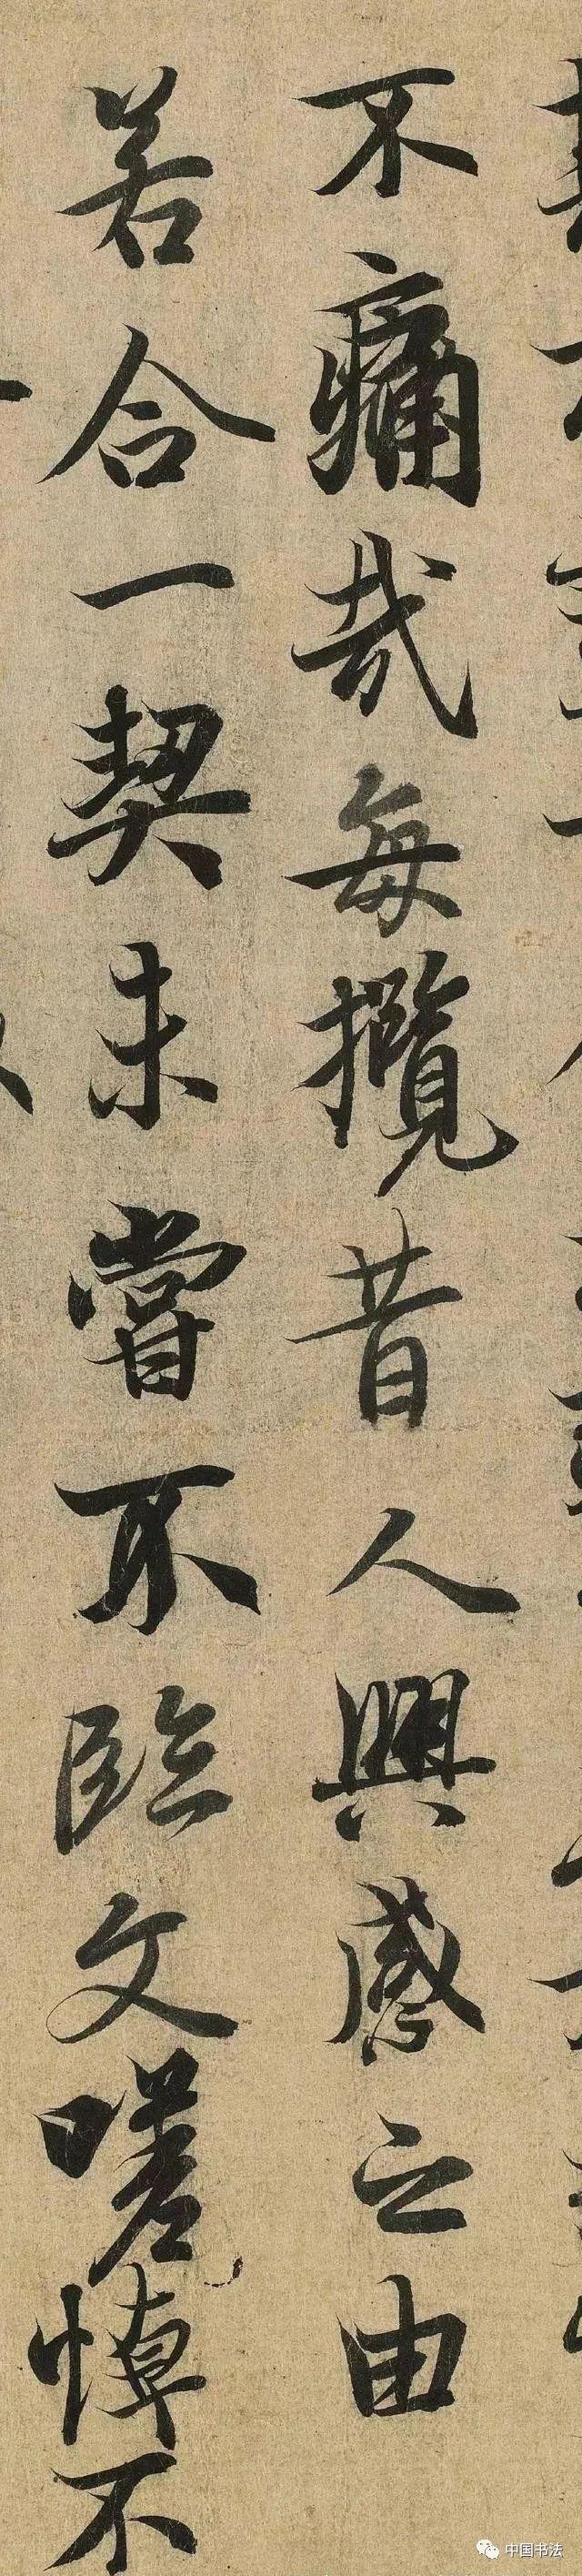 不痛哉每攬昔人興感之由
若合一契未嘗不臨文嗟悼不
中国书法